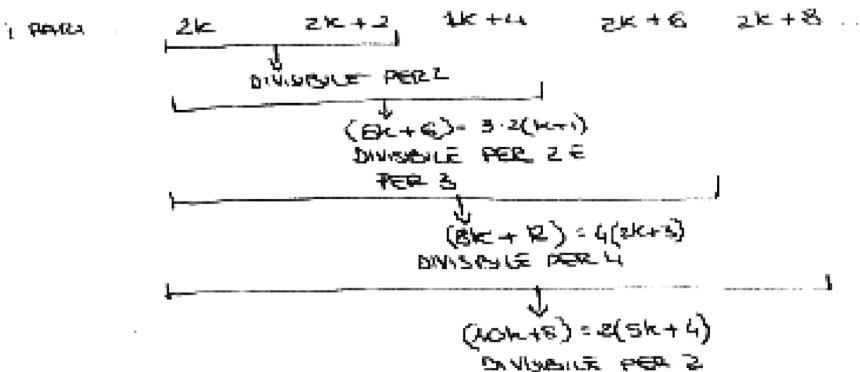 i PARI 2k 2k+2 2k+4 2k+6 2k+8 ..
DIVISIBILE PER 2
(6k+6)= 3·2(k+1)
DIVISIBILE PER 2 E
PER 3
(8k+12)=4(2k+3)
DIVISIBILE PER 4
(10k+8)=2(5k+4)
DIVISIBILE PER 2